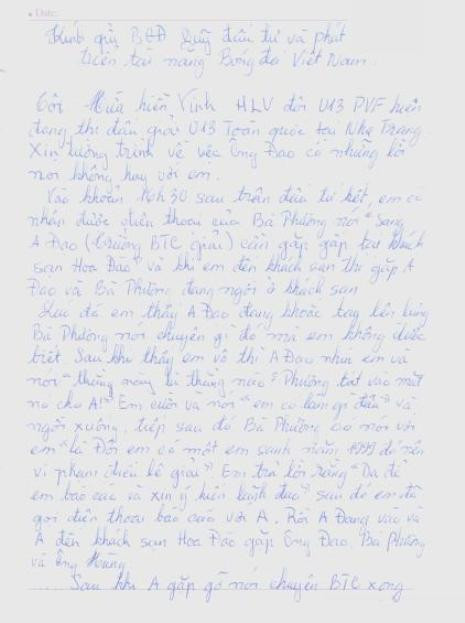 Date:
Kính gửi BGĐ Quỹ đầu tư và phát
triển tài năng Bóng đá Việt Nam.
Tôi Hứa hiền Vinh HLV đội U13 PVF hiện
đang thi đấu giải U13 Toàn quốc tại Nha Trang
Xin tường trình về việc Ông Đao có những lời
nói không hay với em.
Vào khoản 16h30 sau trận đấu tứ kết, em có
nhận được điện thoại của Bà Phường nói " sang
A Đao (trưởng BTC giải) cần gặp gấp tại khách
sạn Hoa Đào" và khi em đến khách sạn thì gặp A
Đao và Bà Phường đang ngồi ở khách sạn
Lúc đó em thấy A Đao đang khoác tay lên lưng
Bà Phường nói chuyện gì đó mà em không được
biết. Sau khi thấy em vô thì A Đao nhìn em và
nói " thằng này là thằng nào? Phường tát vào mặt
nó cho A!" Em cười và nói " em có làm gì đâu" và
ngồi xuống, tiếp sau đó Bà Phường có nói với
em " là Đội em có một em sanh năm 1999 đó nên
vi phạm điều lệ giải" Em trả lời rằng " Dạ để
em báo cáo và xin ý kiến lãnh đạo" sau đó em đã
gọi điện thoại báo cáo với A. Rồi A Đang vào và
A đến khách sạn Hoa Đào gặp Ông Đao, Bà Phường
và Ông Hùng
Sau khi A gặp gỡ nói chuyện BTC xong